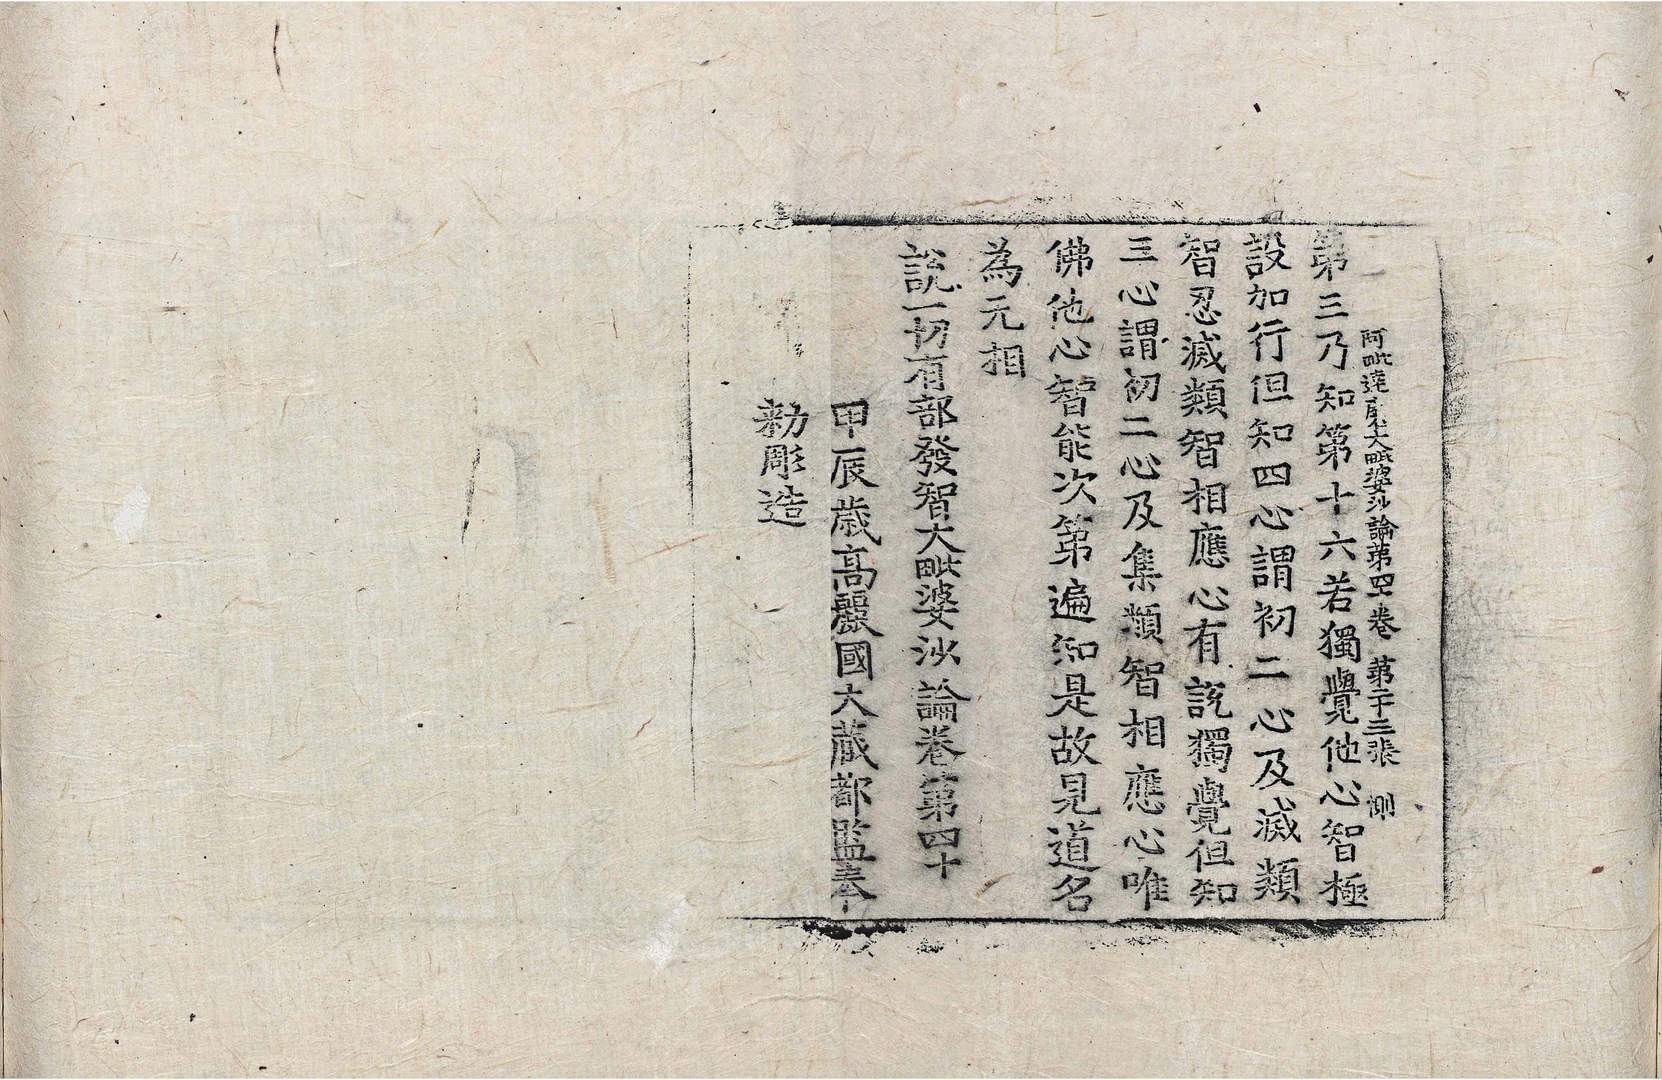 阿毗達磨大毗婆沙論第四十卷 第二十三張 惻
第三乃知第十六若獨覺他心智極
設加行但知四心謂初二心及滅類
智忍滅類智相應心有說獨覺但知
三心謂初二心及集類智相應心唯
佛他心智能次第遍知是故見道名
為无相
說一切有部發智大毗婆沙論卷第四十
甲辰歲高麗國大藏都監奉
勑彫造